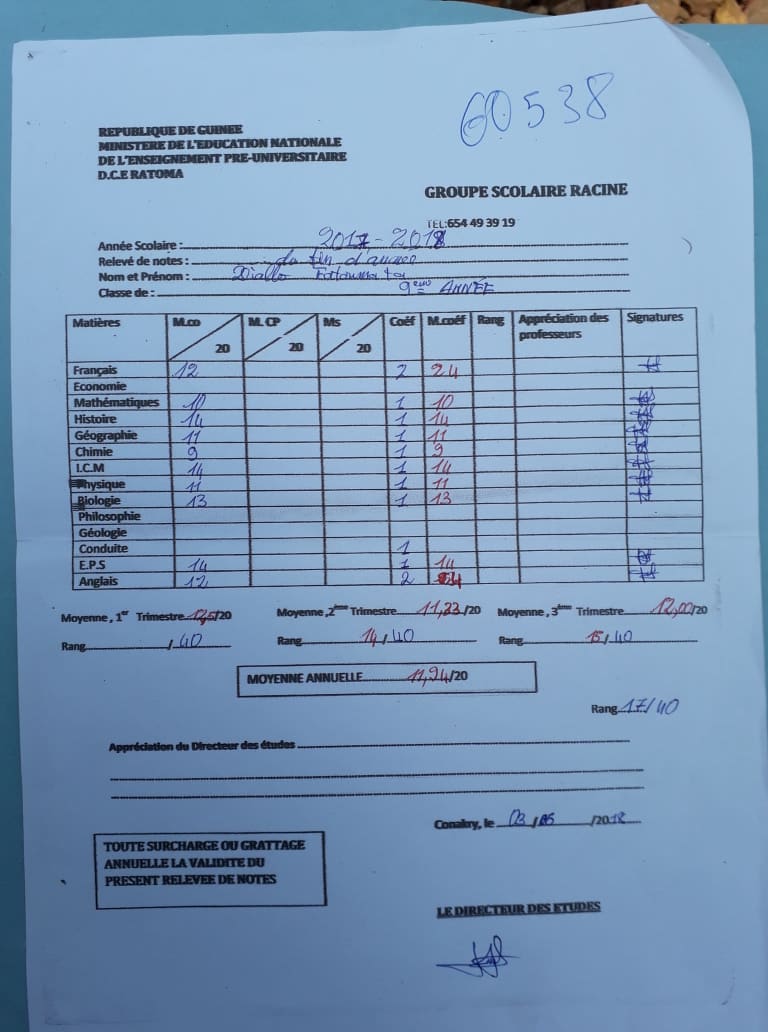 60538
REPUBLIQUE DE GUINEE
MINISTERE DE L'EDUCATION NATIONALE
DE L'ENSEIGNEMENT PRE-UNIVERSITAIRE
D.C.E RATOMA
GROUPE SCOLAIRE RACINE
TEL:654 49 39 19
Année Scolaire : 2017-2018
Relevé de notes : de fin d'année
Nom et Prénom : Diallo Fatoumata
Classe de : 9ème ANNÉE
Matières M.co 20 M. CP 20 Ms 20 Coéf M.coéf Rang Appréciation des professeurs Signatures
Français 12 2 24
Economie
Mathématiques 10 1 10
Histoire 14 1 14
Géographie 11 1 11
Chimie 9 1 9
I.C.M 14 1 14
Physique 11 1 11
Biologie 13 1 13
Philosophie
Géologie
Conduite 1
E.P.S 14 1 14
Anglais 12 2
Moyenne, 1er Trimestre /20 Moyenne, 2ème Trimestre 11,33/20 Moyenne, 3ème Trimestre 12,00/20
Rang /40 Rang 14/40 Rang 15/40
MOYENNE ANNUELLE 11,94/20
Rang 17/40
Appréciation du Directeur des études
Conakry, le 03/ /2018
TOUTE SURCHARGE OU GRATTAGE
ANNUELLE LA VALIDITE DU
PRESENT RELEVEE DE NOTES
LE DIRECTEUR DES ETUDES